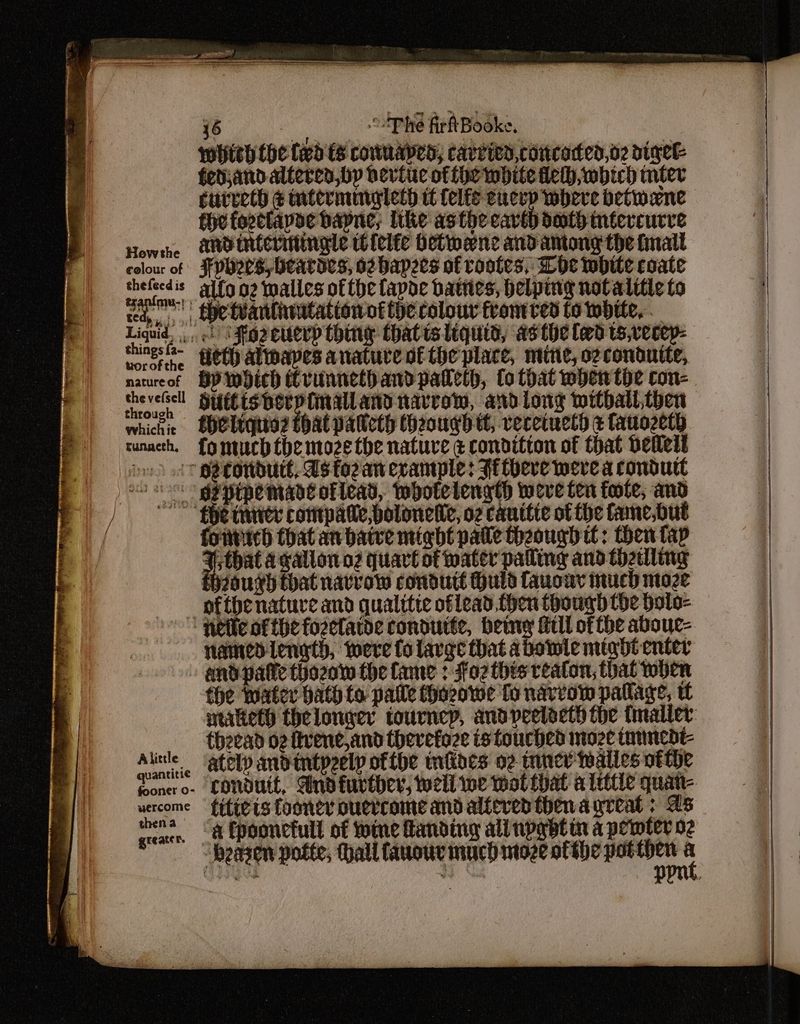 36 The first Booke.
which the sæd is conuayed, carried, concocted, or diges-
ted, and altered, by vertue of the white flesh, which inter
curreth & intermingleth it selfe euery where betwæne
the foresayde vayne, like as the earth doth intercurre
and intermingle it selfe betwæne and among the small
Fybres, beardes, or hayres of rootes. The white coate
also or walles of the sayde vaines, helping not a litle to
the transmutation of the colour from red to white.
How the
colour of
the seed is
transmu-
ted,
For euery thing that is liquid, as the sæd is, recey-
ueth alwayes a nature of the place, mine, or conduite,
by which it runneth and passeth, so that when the con-
duit is very small and narrow, and long withall, then
the liquor that passeth through it, receiueth & sauoreth
so much the more the nature & condition of that vessell
or conduit. As for an example: If there were a conduit
or pipe made of lead, whose length were ten foote, and
the inner compasse, holonesse, or cauitie of the same, but
so much that an haire might passe through it: then say
I, that a gallon or quart of water passing and thrilling
through that narrow conduit shuld sauour much more
of the nature and qualitie of lead then though the holo-
nesse of the foresaide conduite, being still of the aboue-
named length, were so large that a bowle might enter
and passe thorow the same: For this reason, that when
the water hath to passe thorowe so narrow passage, it
maketh the longer iourney, and yeeldeth the smaller
thread or strene, and therefore is touched more immedi-
ately and intyrely of the insides or inner walles of the
conduit. And further, well we wot that a little quan-
titie is sooner ouercome and altered then a great: As
a spoonefull of wine standing all nyght in a pewter or
brazen potte, shall sauour much more of the pot then a
pynt
Liquid
things sa-
uor of the
nature of
the vessell
through
which it
runneth.
A little
quantitie
sooner o-
uercome
then a
greater.